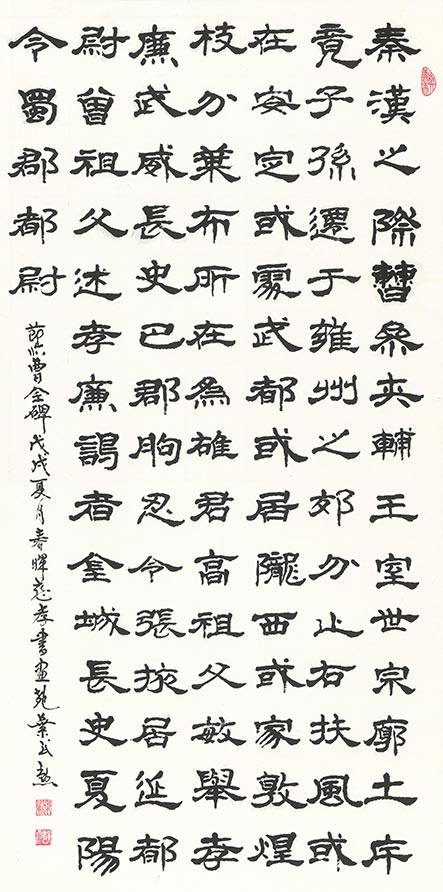 秦漢之際曹參夾輔王室世宗廓土斥
竟子孫遷于雍州之郊分止右扶風或
在安定或處武都或居隴西或家敦煌
枝分葉布所在為雄君高祖父敏舉孝
廉武威長史巴郡朐忍令張掖居延都
尉曾祖父述孝廉謁者金城長史夏陽
令蜀郡都尉
節臨曹全碑戊戌夏月春暉慈孝書畫苑葉